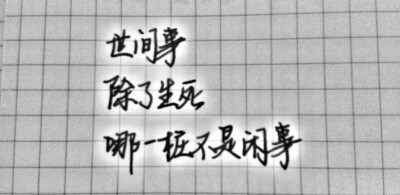 世间事
除了生死
哪一桩不是闲事